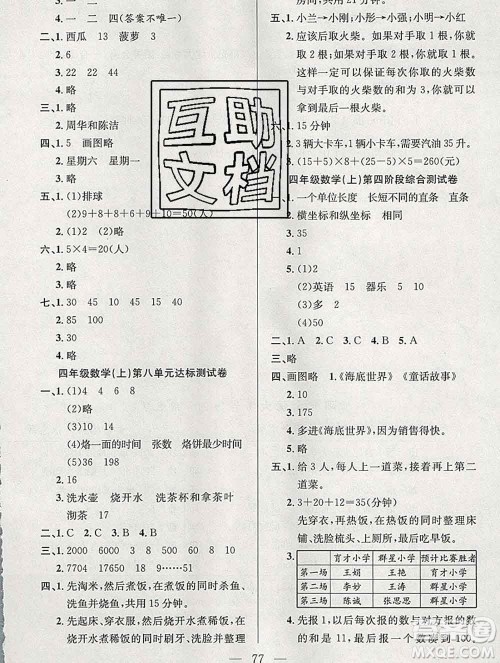 4. 一 二 四(答案不唯一)
二、1. 西瓜 13 菠萝 3
2. 6
三、1. 略
2. 周华和陈洁
四、1. 5 画图略
2. 星期六 星期一
3. 略
五、1. (1)排球
(2)9+8+8+6+9+10=50(人)
2. (1)(2)略
六、1. 5×4=20(人)
2. 略
3. 略
七、1. 30 45 10 45 15
2. 85 100
3. 30
4. 略
四年级数学(上)第八单元达标测试卷
一、1. (1)4 4 6 8 6
(2)略
3. (1)10 14
(4)烙一面的时间 张数 烙饼最少时间
(5)36 198
(6)略
2. 洗水壶 烧开水 洗茶杯和拿茶叶
沏茶 17
二、1. C 2. C 3. B
三、1. 2000 6030 8 7 120
2. 7000 1800 9 17……5
四、1. 先淘米,然后煮饭,在煮饭的同时杀鱼、
洗鱼并烧鱼,共用15分钟。
2. 先起床、穿衣服,然后烧开水煮饭,在
烧开水煮饭的同时刷牙、洗脸并整理
房间,共用21分钟。
五、1. 小兰→小刚;小彤→小强;小明→小红
2. 应该后取火柴。如果对手取1根,你
就取2根;如果对手取2根,你就取
1根;这样一定可以保证每次你取的
火柴数与对手的火柴数的和都为3,
且你能取到最后一根火柴。
六、1. 15分钟
2. 3辆大卡车,1辆小卡车,需要汽油35升。
3. (15+5)×8+(15+5)×5=260(元)
四年级数学(上)第四阶段综合测试卷
一、1. 一个单位长度 长短不同的直条 直条
2. 横坐标和纵坐标 相同
3. 35
4. 2
5. (1)略
(2)英语 15 器乐 5
(3)多 2
二、1. 40
2. 20
三、略
四、画图略 1.《海底世界》《童话故事》
2. 10
3. 15
4. 多进《海底世界》,因为喜欢的人多。
五、1. 给3人,每人先上一道菜,再上第二
道菜。
2. 3+20+12=35(分钟)
先穿衣,再热饭,在热饭的同时整理床
铺、洗脸刷牙,最后吃早饭。
3.
育才小学 群星小学 预计比赛胜者
第一场 王娟 王艳 育才小学
第二场 李妙 李丹 育才小学
第三场 陈诚 张思思 群星小学
4. 先报1,以后每次报的数与对方报的数
77
互助
文档
作业帮
MXQE.COM